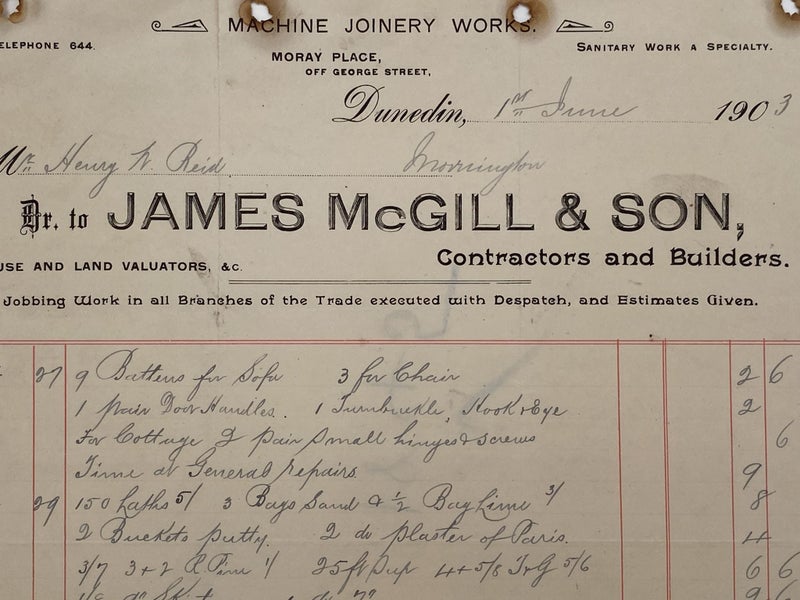 MACHINE JOINERY WORKS.
ELEPHONE 644.
SANITARY WORK A SPECIALTY.
MORAY PLACE,
OFF GEORGE STREET,
Dunedin, 1st June 1903
Mr Henry W. Reid Mornington
Dr. to JAMES McGILL & SON,
USE AND LAND VALUATORS, &c. Contractors and Builders.
Jobbing Work in all Branches of the Trade executed with Despatch, and Estimates Given.
27 9 Battens for Sofa 3 for Chair 2 6
1 pair Door Handles. 1 Turnbuckle, Hook & Eye 2
For Cottage 2 pair small hinges & screws 6
Time at General repairs 9
29 150 Laths 5/ 3 Bags Sand & ½ Bag Lime 3/ 8
2 Buckets putty. 2 do plaster of Paris. 4
3/7 3 + 2 R. Pine 1/ 25 ft 4 + 5/8 T & G 5/6 6 6